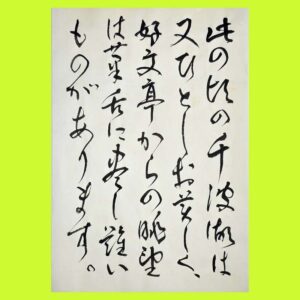 此の頃の千波湖は
又ひとしお美しく、
好文亭からの眺望
は筆舌に尽し難い
ものがあります。